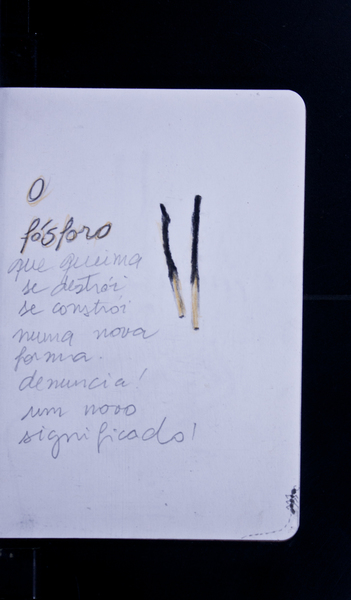 O
fósforo
que queima
se destrói
se constrói
numa nova
forma.
denuncia!
um novo
significado!